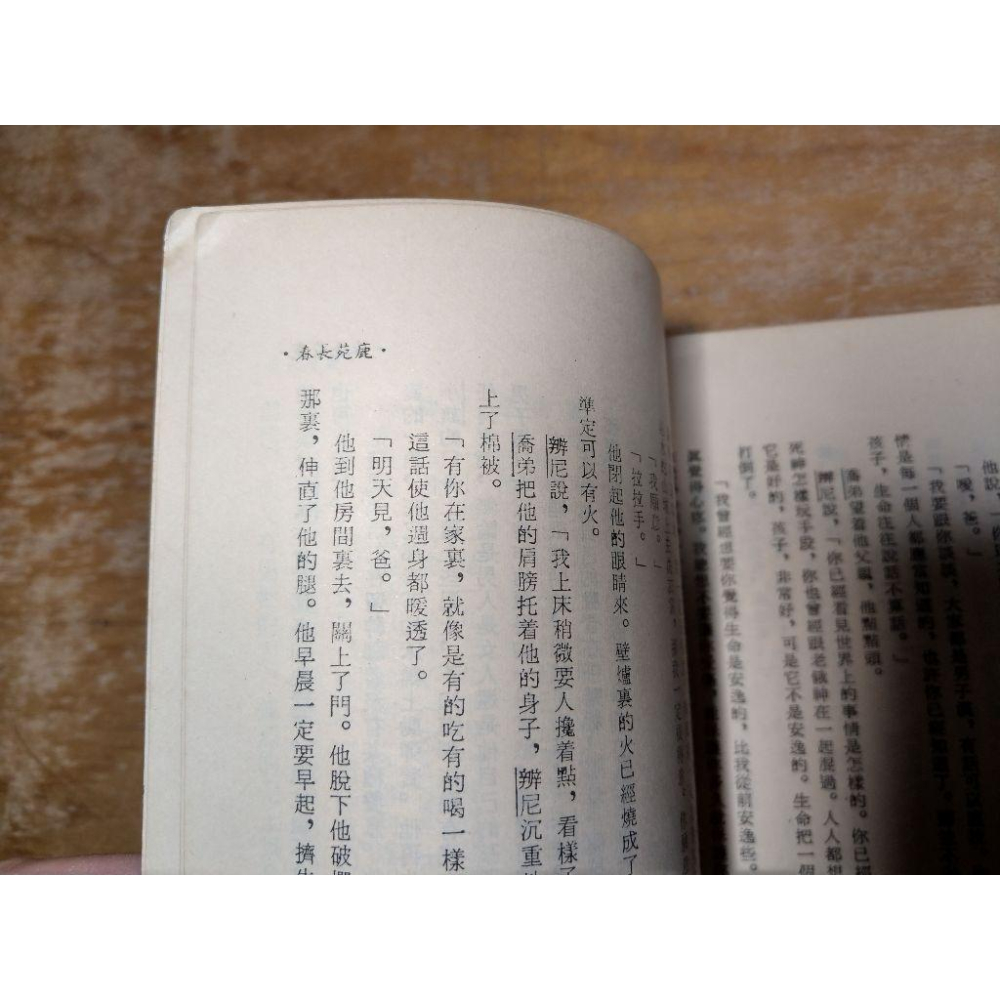 他說，
「噯，爸。」
「我要跟你談談，
情是每一個人都應當知道的，
孩子，生命往往說話不算話。」
喬弟望着他父親，他點點頭。
辨尼說，「你已經看見世界上的事情是怎樣的。你已經
死神怎樣玩手段，你也曾經跟老 神在一起混過。人人都想
它是好的，孩子，非常好，可是它不是安逸的。生命把一個
打倒了。
「我曾經想要你覺得生命是安逸的，比我從前安逸些。
眞覺得心疼。
鹿苑長春
「拉拉手。」
他閉起他的眼睛來。壁爐裏的火已經燒成了
準定可以有火。
辨尼說，「我上床稍微要人攙着點，看樣子
喬弟把他的肩膀托着他的身子，辨尼沉重
上了棉被。
「有你在家裏，就像是有的吃有的喝一樣
這話使他遍身都暖透了。
「明天見，爸。」
他到他房間裏去，關上了門。他脫下他破
那裏，伸直了他的腿。他早晨一定要早起，擠